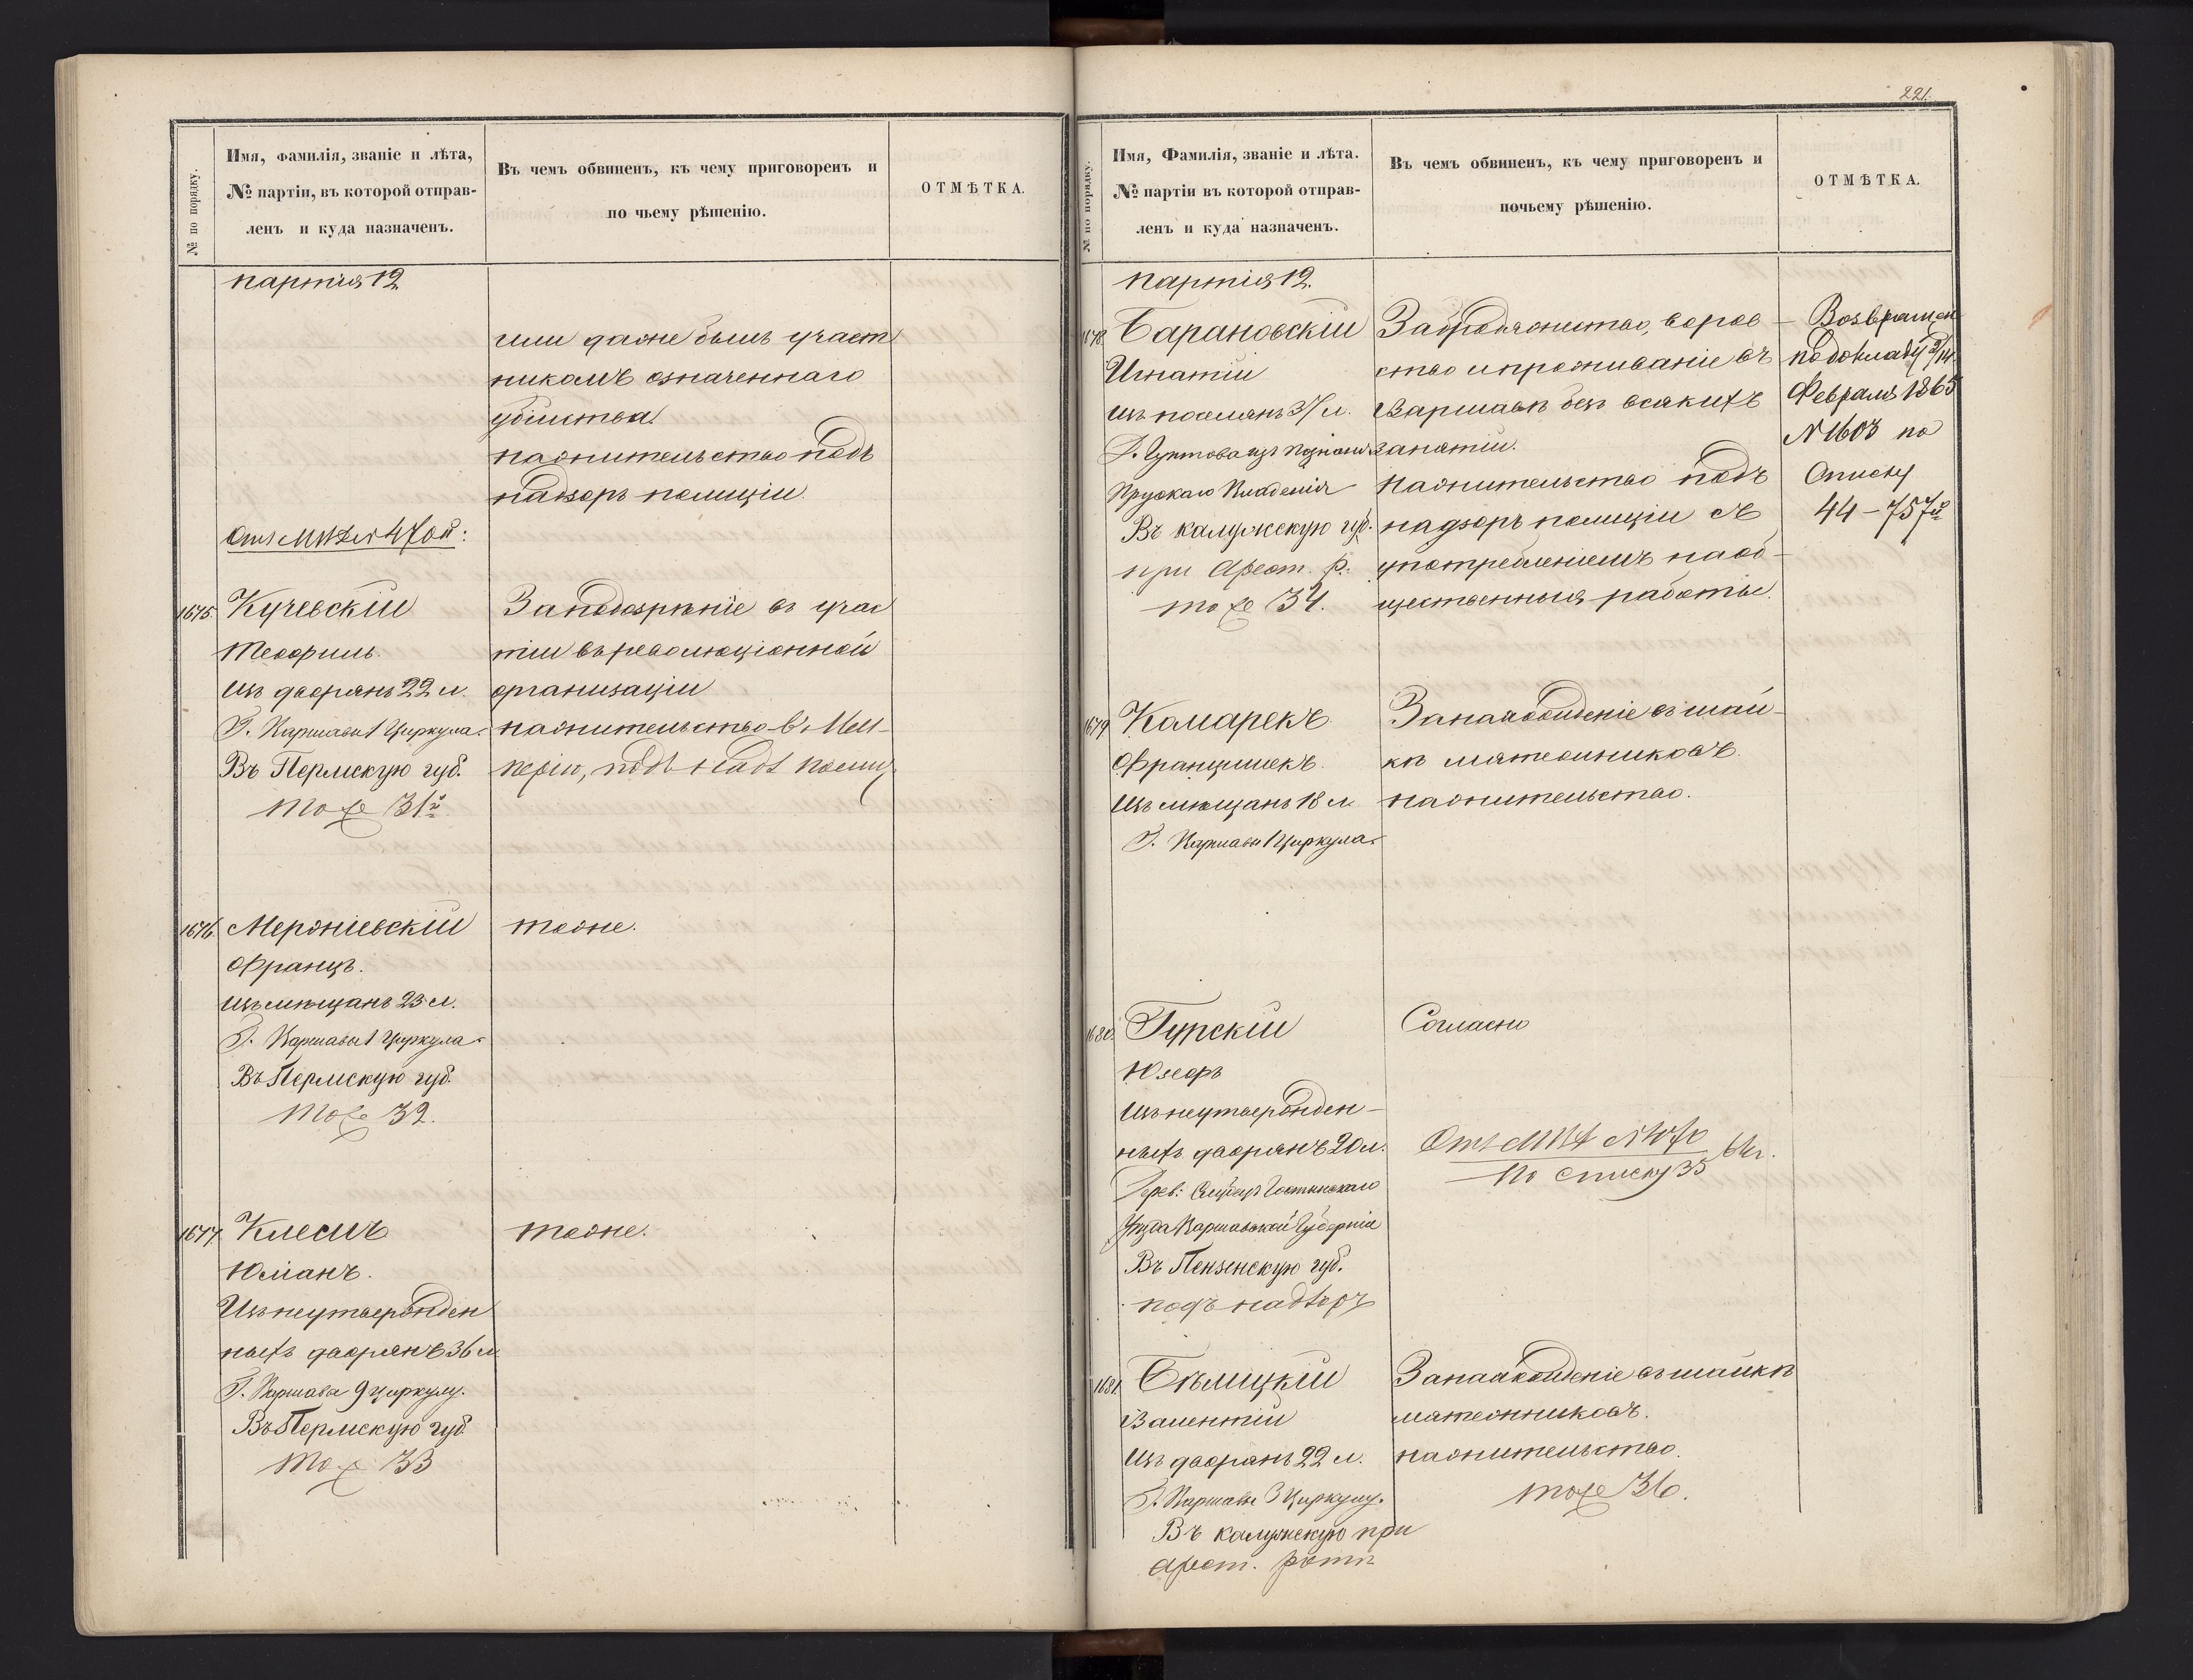 № по порядку.
Имя, фамилія, званіе и лѣта,
№ партіи, въ которой отправ-
ленъ и куда назначенъ.
Въ чемъ обвиненъ, къ чему приговоренъ и
по чьему рѣшенію.
ОТМѢТКА.
партія 12
или даже былъ участ
никомъ означеннаго
убійства.
На жительство подъ
надзоръ полиціи.
1675. Кучевскій
Теофиль.
Изъ дворянъ 22 л.
Г. Варшавы 1 Циркула.
Въ Пермскую губ.
тоже 31й
За подозрѣніе въ учас
тіи въ революціонной
организаціи
на жительство въ Им-
перію, подъ надз полиц
1676. Мержіевскій
Францъ.
Изъ мѣщанъ 23 л.
Г. Варшавы 1 Циркула.
Въ Пермскую губ.
тоже 32.
тоже.
1677. Клесмъ
Юліанъ.
Изъ неутвержден
ныхъ дворянъ 36 л
Г. Варшава 9 циркулу.
Въ Пермскую губ.
тоже 33
тоже.
221.
№ по порядку.
Имя, Фамилія, званіе и лѣта.
№ партіи въ которой отправ-
ленъ и куда назначенъ.
Въ чемъ обвиненъ, къ чему приговоренъ и
почьему рѣшенію.
ОТМѢТКА.
партія 12.
1678. Барановскій
Игнатій
Изъ поселянъ 37 л.
Прускаго Владенія
Въ калужскую губ.
при Арест. р.
тоже 34.
За бродяжнитво, воров
ство и проживаніе въ
Варшавѣ безъ всякихъ
занятій.
На жительство подъ
надзоръ полиціи съ
употребленіемъ на об-
щественныя работы.
Возвращен
по докладу 2/14
Февраля 1865
№ 1603 по
Списку
44-757й
1679 Комарекъ
Францишекъ.
Изъ мѣщанъ 18 л
Г. Варшавы 1 Циркула.
За нахожденіе въ шай-
кѣ мятежниковъ.
на жительство.
1680. Гурскій
Юзефъ
Изъ неутвержден-
ныхъ дворянъ 20 л.
Гостынскаго
Уѣзда Варшавской Губерніи
Въ Пензенскую губ.
подъ надзоръ
Согласно
По списку 35
1681. Бѣлицкій
Валентій
Изъ дворянъ 22 л.
Г. Варшавы 3 Циркулу.
Въ калужскую при
Арест. ротѣ
За нахожденіе въ шайкѣ
мятежниковъ.
на жительство.
тоже 36.